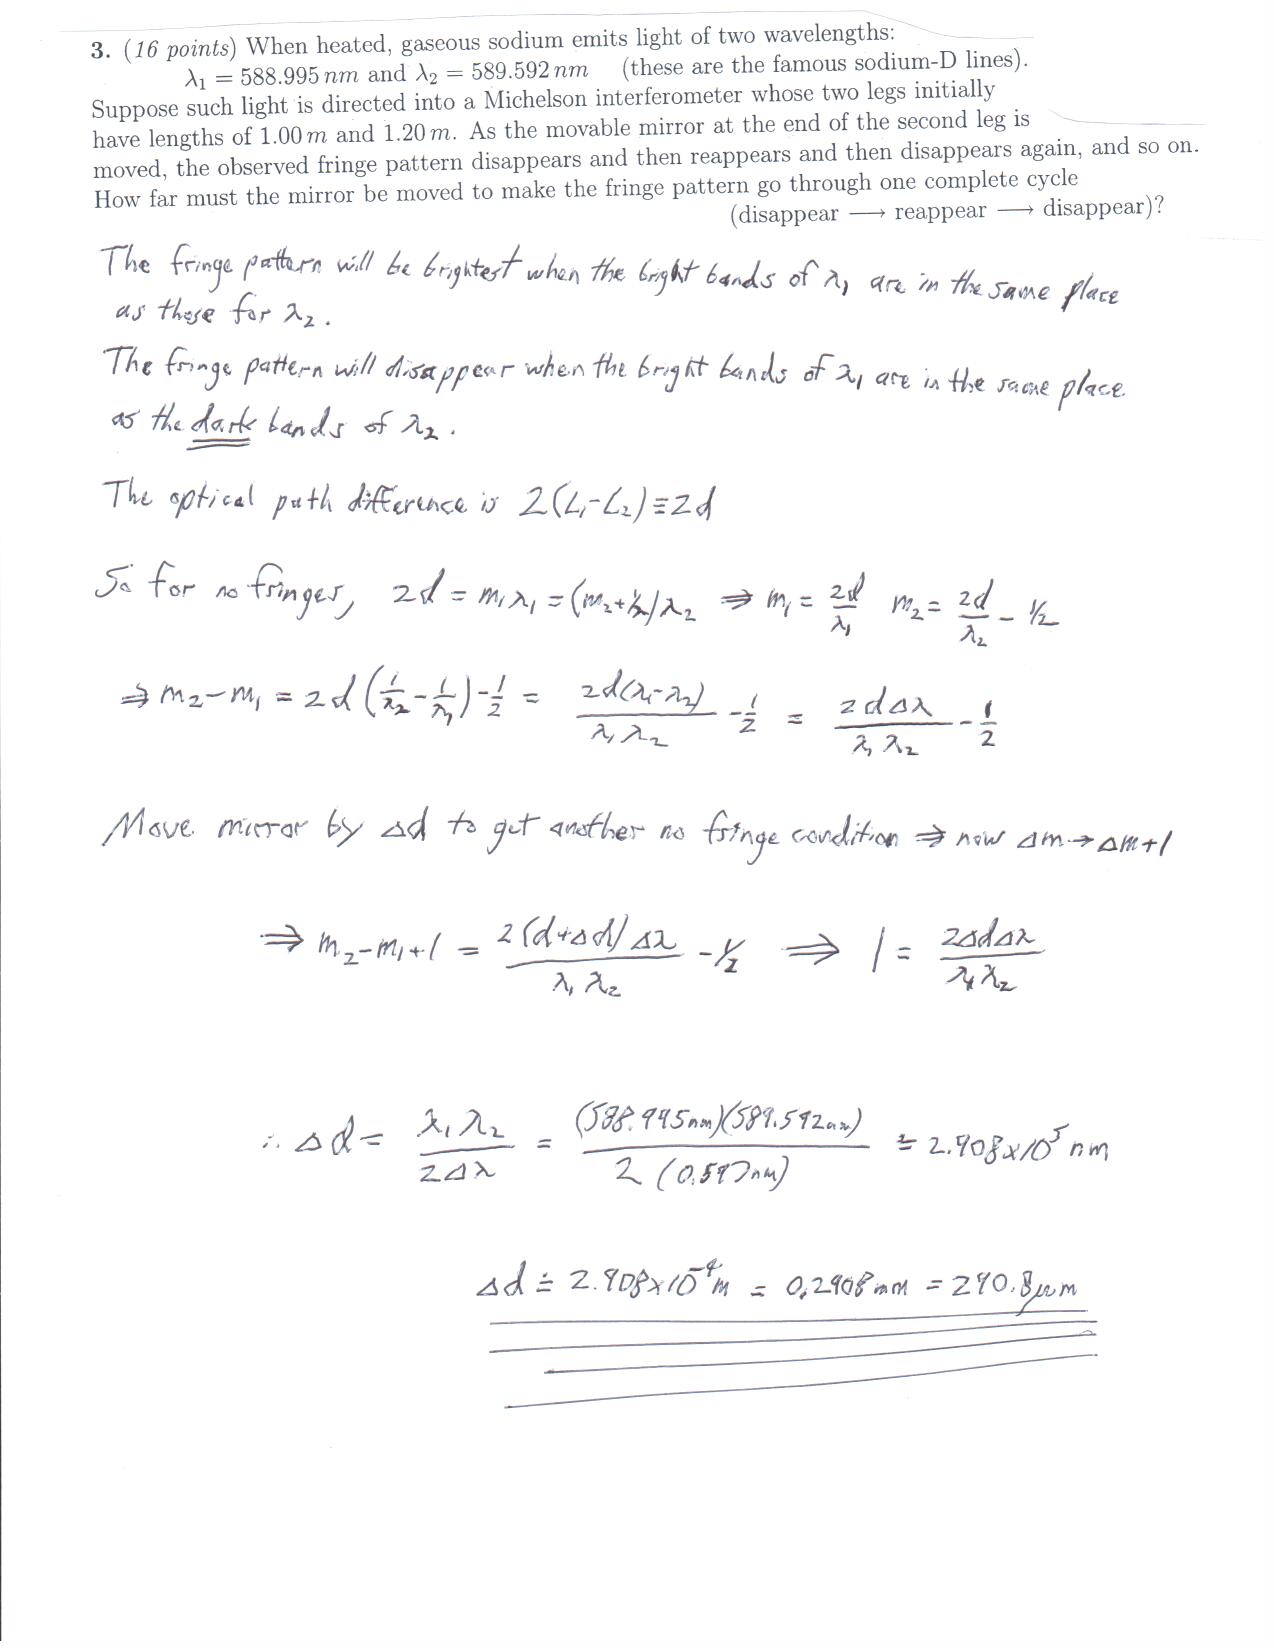 3. (16 points) When heated, gaseous sodium emits light of two wavelengths:
λ₁ = 588.995 nm and λ₂ = 589.592 nm (these are the famous sodium-D lines).
Suppose such light is directed into a Michelson interferometer whose two legs initially
have lengths of 1.00 m and 1.20 m. As the movable mirror at the end of the second leg is
moved, the observed fringe pattern disappears and then reappears and then disappears again, and so on.
How far must the mirror be moved to make the fringe pattern go through one complete cycle
(disappear ⟶ reappear ⟶ disappear)?
The fringe pattern will be brightest when the bright bands of λ₁ are in the same place
as those for λ₂.
The fringe pattern will disappear when the bright bands of λ₁ are in the same place
as the dark bands of λ₂.
The optical path difference is 2(L₁-L₂)≡2d
So for no fringes, 2d = m₁λ₁ = (m₂+½)λ₂ ⇒ m₁ = 2d/λ₁ m₂ = 2d/λ₂ - ½
⇒ m₂-m₁ = 2d(1/λ₂ - 1/λ₁) - 1/2 = 2d(λ₁-λ₂)/λ₁λ₂ - 1/2 = 2dΔλ/λ₁λ₂ - 1/2
Move mirror by Δd to get another no fringe condition ⇒ now Δm→Δm+1
⇒ m₂-m₁+1 = 2(d+Δd)Δλ/λ₁λ₂ - ½ ⇒ 1 = 2ΔdΔλ/λ₁λ₂
∴ Δd = λ₁λ₂/2Δλ = (588.995nm)(589.592nm)/2(0.597nm) ≐ 2.908x10⁵ nm
Δd ≐ 2.908x10⁻⁴m = 0.2908mm = 290.8μm